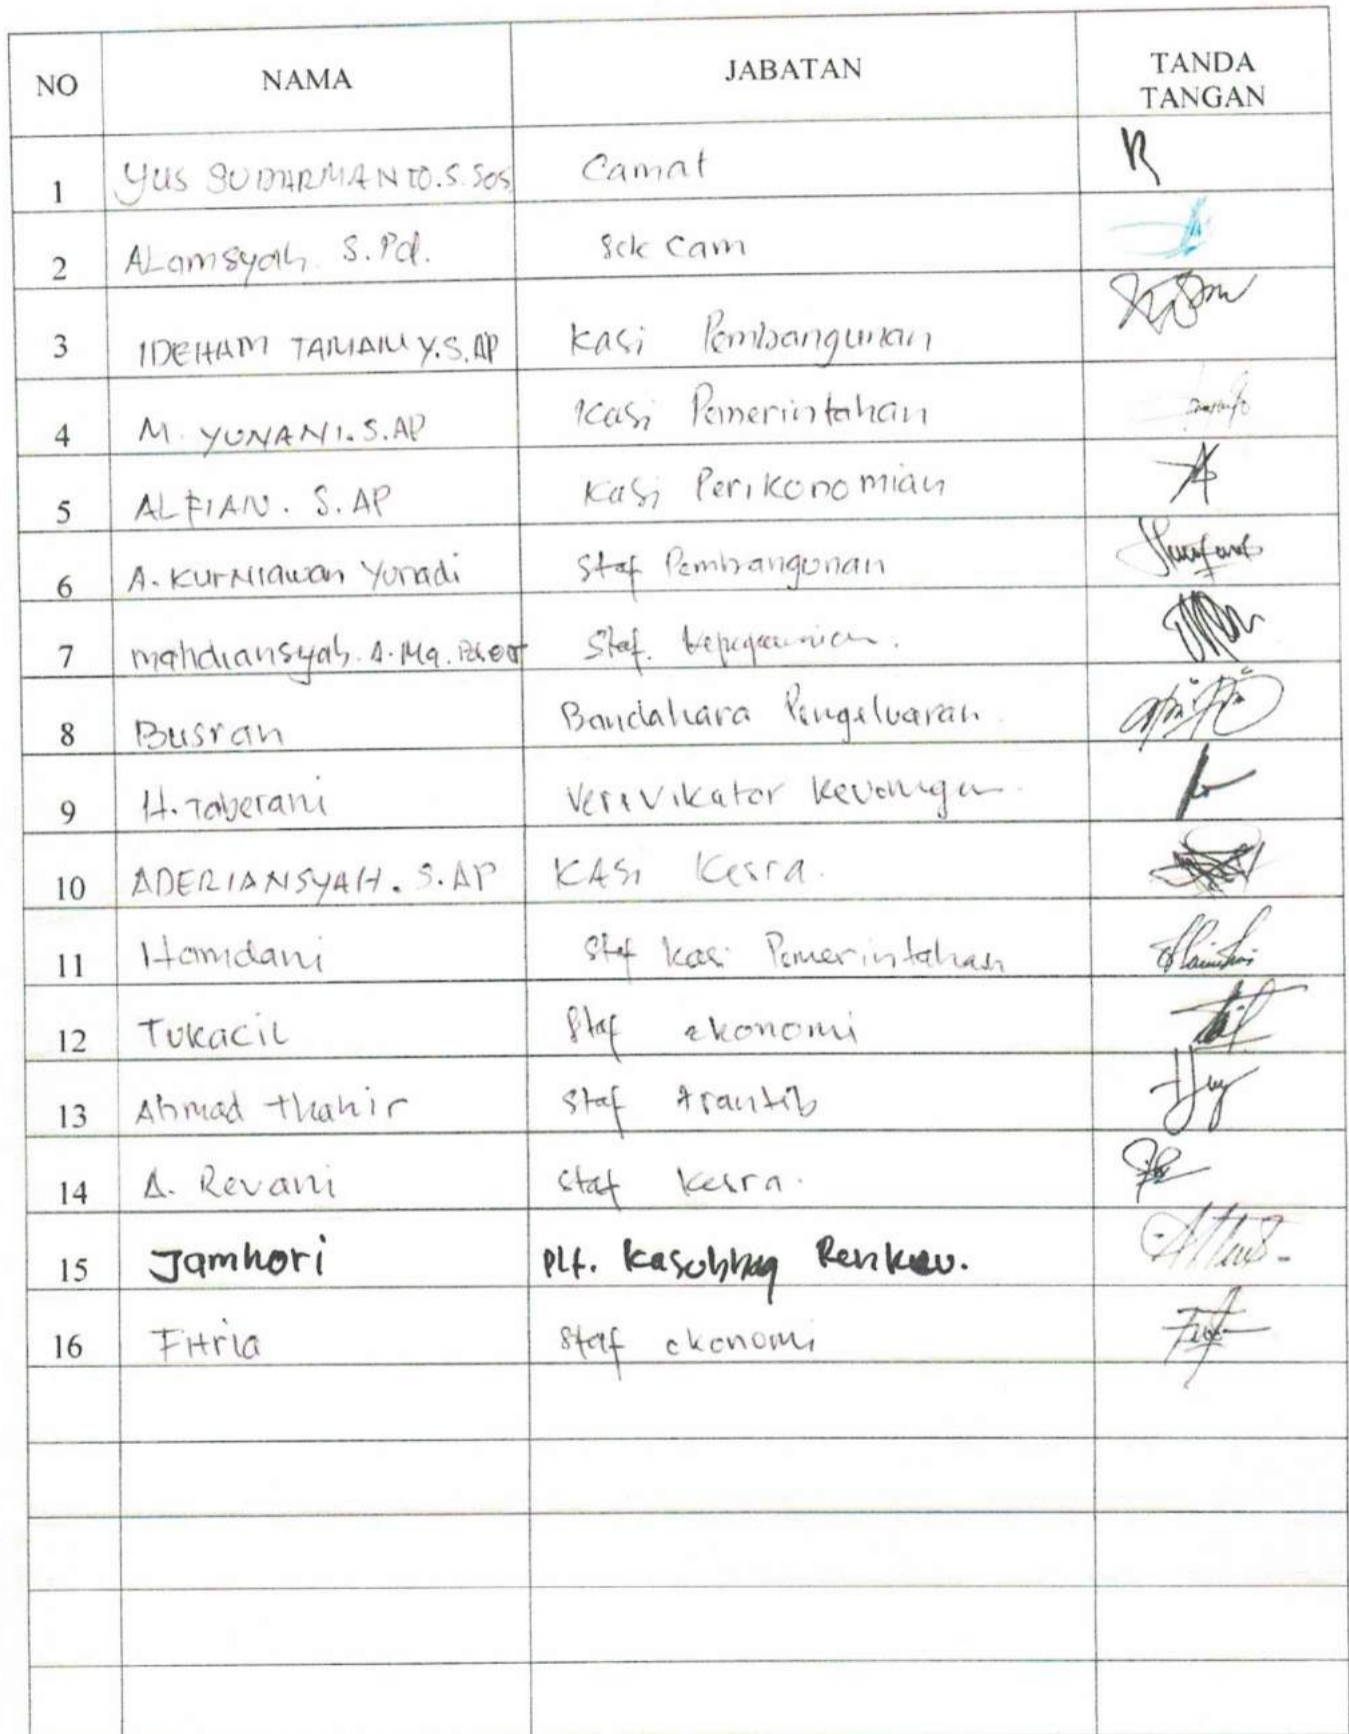 NO NAMA JABATAN TANDA TANGAN
1 YUS SUDARMANTO.S.Sos Camat
2 ALamsyah S.Pd. Sek Cam
3 IDEHAM TAMAMY.S.AP Kasi Pembangunan
4 M. YUNANI.S.AP Kasi Pemerintahan
5 ALFIAN. S.AP Kasi Perikonomian
6 A. KURNIAWAN Yuradi Staf Pembangunan
7 mahdiansyah. A.Ma. Staf. Kepegawaian.
8 Busran Bandahara Pengeluaran.
9 H. Taberani Verivikator Keuangan.
10 ADERIANSYAH. S.AP KASi Kesra.
11 Hamdani Staf Kasi Pemerintahan
12 Tukacil Staf ekonomi
13 Ahmad Thahir Staf Trantib
14 A. Revani Staf Kesra.
15 Jamhori Plt. Kasubbag Renkeu.
16 Fitria Staf ekonomi